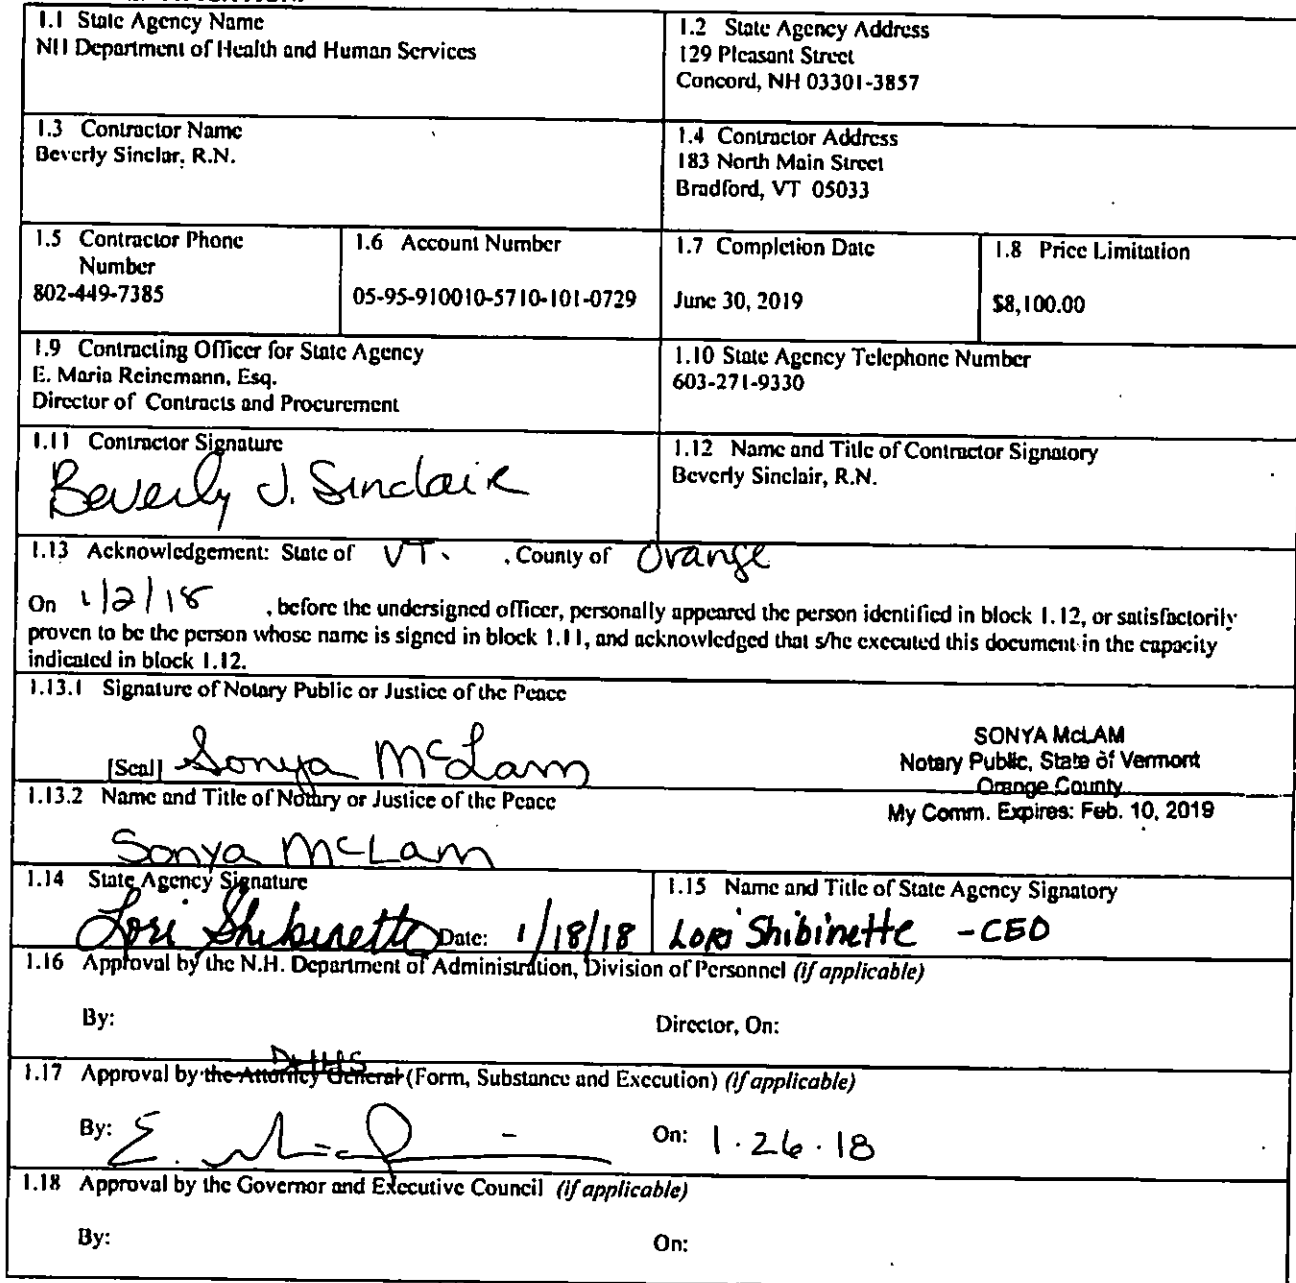 1.1 State Agency Name
NH Department of Health and Human Services
1.2 State Agency Address
129 Pleasant Street
Concord, NH 03301-3857
1.3 Contractor Name
Beverly Sinclar, R.N.
1.4 Contractor Address
183 North Main Street
Bradford, VT 05033
1.5 Contractor Phone
Number
802-449-7385
1.6 Account Number
05-95-910010-5710-101-0729
1.7 Completion Date
June 30, 2019
1.8 Price Limitation
$8,100.00
1.9 Contracting Officer for State Agency
E. Maria Reinemann, Esq.
Director of Contracts and Procurement
1.10 State Agency Telephone Number
603-271-9330
1.11 Contractor Signature
Beverly J. Sinclair
1.12 Name and Title of Contractor Signatory
Beverly Sinclair, R.N.
1.13 Acknowledgement: State of VT. , County of Orange
On 1/2/18 , before the undersigned officer, personally appeared the person identified in block 1.12, or satisfactorily
proven to be the person whose name is signed in block 1.11, and acknowledged that s/he executed this document in the capacity
indicated in block 1.12.
1.13.1 Signature of Notary Public or Justice of the Peace
[Seal] Sonya McLam
SONYA McLAM
Notary Public, State of Vermont
Orange County
My Comm. Expires: Feb. 10, 2019
1.13.2 Name and Title of Notary or Justice of the Peace
Sonya McLam
1.14 State Agency Signature
Lori Shibinette Date: 1/18/18
1.15 Name and Title of State Agency Signatory
Lori Shibinette - CEO
1.16 Approval by the N.H. Department of Administration, Division of Personnel (if applicable)
By: Director, On:
DHHS
1.17 Approval by the Attorney General (Form, Substance and Execution) (if applicable)
By: E. On: 1.26.18
1.18 Approval by the Governor and Executive Council (if applicable)
By: On: